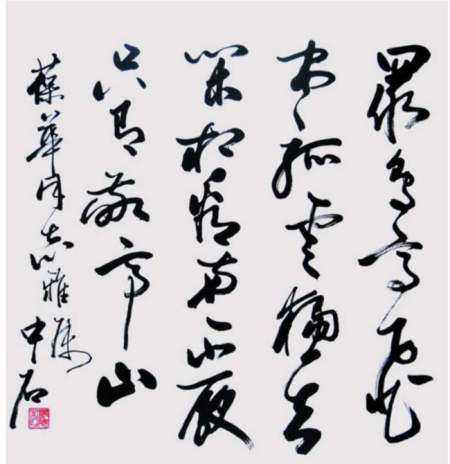 眾鳥高飛
盡孤雲獨去
閑相看两不厭
只有敬亭山
葆華同志雅属
中石